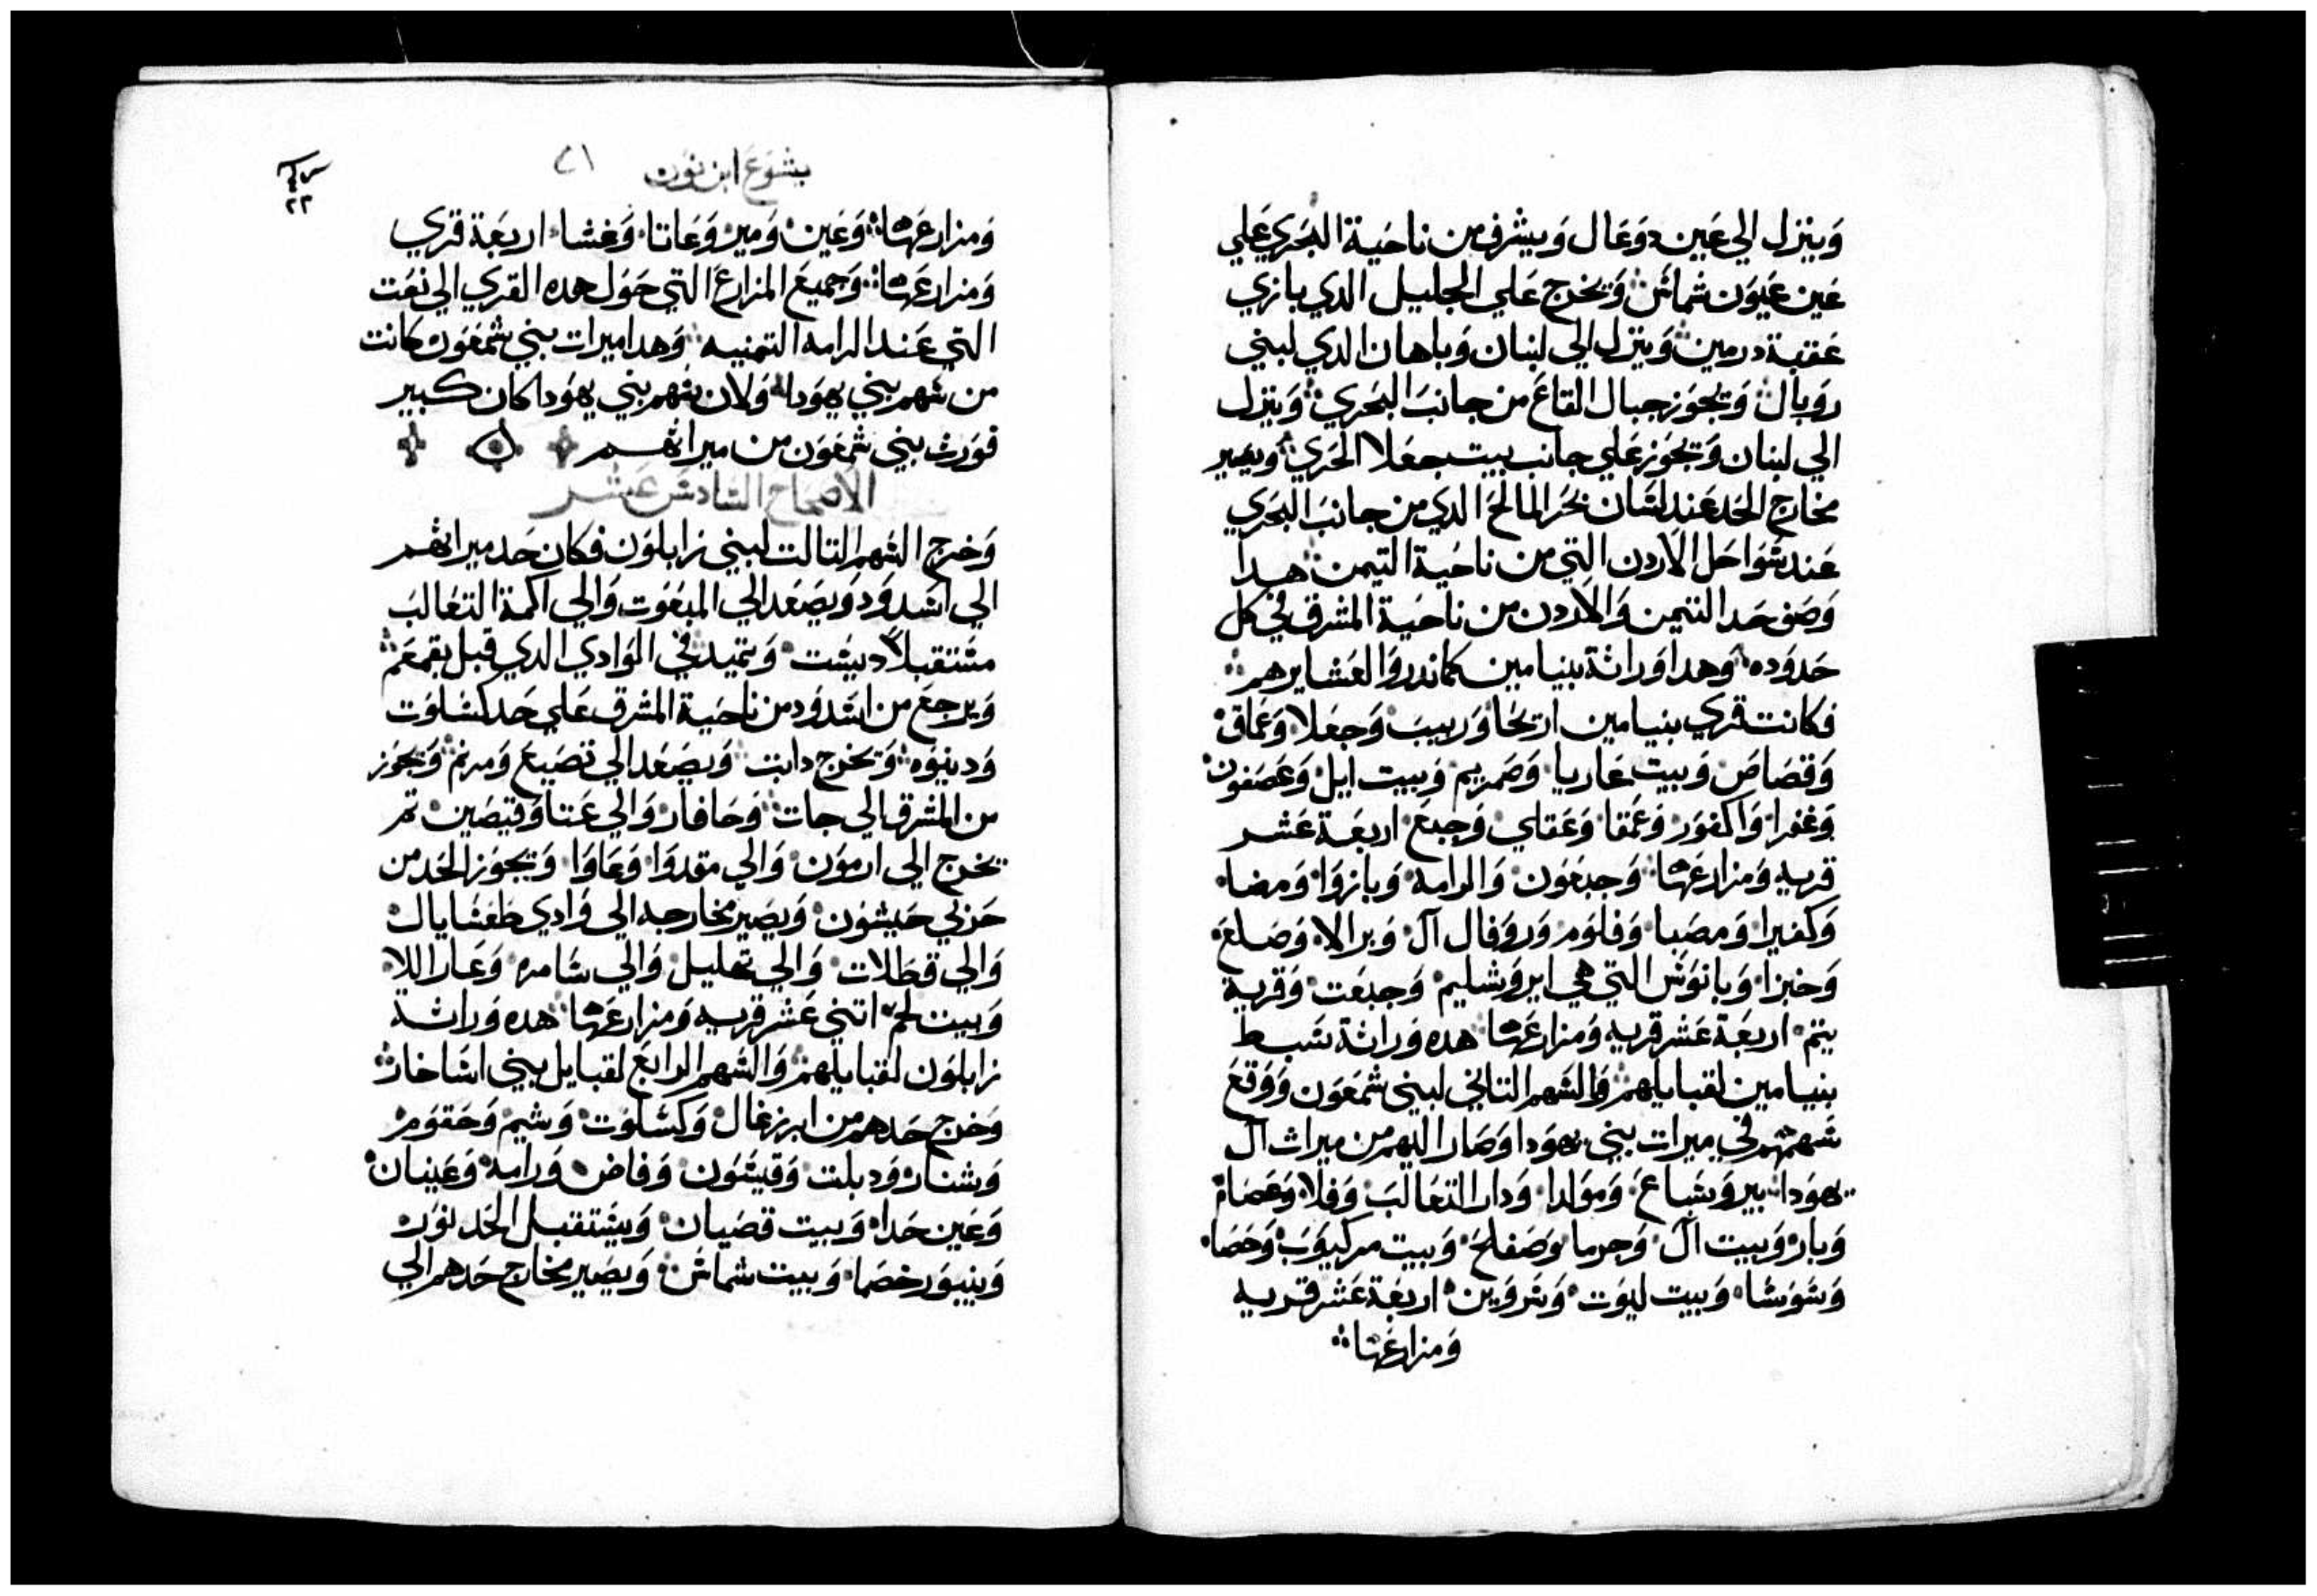 وينزل الي عين دوغال ويشرف من ناحية البحري علي
عين عيون شماش وتخرج علي الجليل الدي بازي
عقبة درمين وينزل الي لبنان وباهان الدي لبني
روبال وتجوز جبال القاع من جانب البحري وينزل
الي لبنان وتجوز علي جانب بيت جعلا الحري ويصير
مخارج الحد عند لسان بحر المالح الدي من جانب البحري
عند سواحل الاردن التي من ناحية التيمن هدا
وصف حد التيمن والاردن من ناحية المشرق في كل
حدوده وهدا وراثة بنيامين كماندروا لعشايرهم
فكانت قري بنيامين اريحا وربيب وجعلا وعماق
وقصاص وبيت عاريا وصمريم وبيت ايل وعصفون
وغفرا واكفور وعمقا وعقاي وجبع اربعة عشر
قريه ومزارعها وجبعون والرامه وبازوا ومضا
وكفيرا ومصبا وفلوم وروفال آل وبرالا وضلع
وخبزا وبانوس التي هي ايروشليم وجبعت وقرية
يتم اربعة عشر قريه ومزارعها هده وراثة سبط
بنيامين لقبايلهم والسهم التاني لبني شمعون ووقع
سهمهم في ميرات بني يهودا وصار اليهم من ميراث ال
يهودا بير وسباع ومولدا ودار التعالب وفلا وعصام
وبار وبيت آل وجرما وصفلح وبيت مركيوب وحصا
وسوسا وبيت ليوت وسروين اربعة عشر قريه
ومزارعها
يشوع ابن نون ٢١
ومزارعها وعين ومير وعاتا وغشا اربعة قري
ومزارعها وجميع المزارع التي حول هده القري الي نعت
التي عند الرامه التمنيه وهدا ميرات بني شمعون كانت
من سهم بني يهودا ولان سهم بني يهودا كان كبير
فورث بني شمعون من ميراثهم
الاصحاح السادس عشر
وخرج السهم التالت لبني زابلون فكان حد ميراثهم
الي اشدود ويصعد الي المبعوت والي اكمة التعالب
مستقبلا دبيشت ويتميد في الوادي الدي قبل بقمعم
ويرجع من اشدود من ناحية المشرق علي حد كسلوت
ودينوه وتخرج دابت ويصعد الي تصيع ومرنم وتجوز
من المشرق الي جات وحافار والي عتا وقيصين تم
تخرج الي ارمون والي مقدوا وعاوا وتجوز الحد من
حزبي حيشون ويصير مخارجه الي وادي طفشايال
والي قطلات والي تهليل والي سامره وعار اللا
وبيت لحم اتني عشر قريه ومزارعها هده وراثة
زابلون لقبايلهم والسهم الرابع لقبايل بيني اساخار
وخرج حدهم من ابرزغال وكسلوت وشيم وحقوم
وشنار ودبلت وقيسون وفاض ورامه وعينان
وعين حدا وبيت قصيان ويستقبل الحد نور
وبنيور خصما وبيت شماس ويصير مخارج حدهم الي